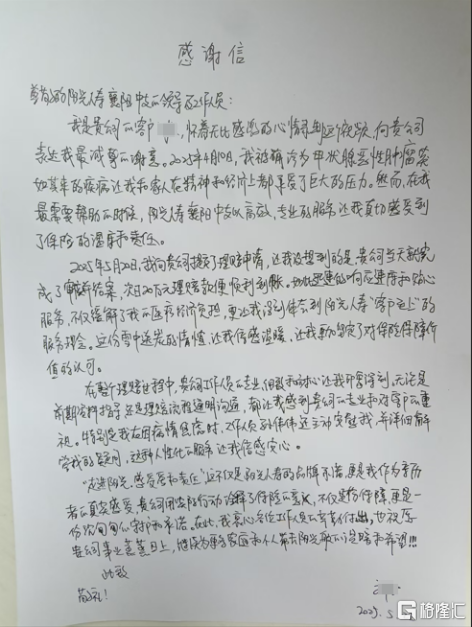 感谢信
尊敬的阳光人寿襄阳中支的领导和工作人员:
我是贵公司的客户 , 怀着无比感激的心情 , 向贵公司
表达我最诚挚的谢意。2025年4月10日, 我被确诊为甲状腺恶性肿瘤,突
如其来的疾病让我和家人在精神和经济上都承受了巨大的压力。然而,在我
最需要帮助的时候, 阳光人寿襄阳中支以高效,专业的服务让我真切感受到
了保险的温度和责任。
2025年5月20日,我向贵公司提交了理赔申请,让我没想到的是,贵公司当天就完
成了 结案,次日20万元理赔款便顺利到账。如此迅速的响应速度和贴心
服务,不仅缓解了我的医疗经济负担,更让我深刻体会到阳光人寿“客户至上”的
服务理念。这份雪中送炭的情谊,让我倍感温暖,让我更加坚定了对保险保障价
值的认可。
在整个理赔过程中,贵公司工作人员的专业,细致和耐心让我印象深刻,无论是
前期资料指导 还是理赔流程透明沟通,都让我感到贵公司的专业和对客户的重
视。特别是我在因病情焦虑时,工作人员 还主动安慰我,并详细解
答我的疑问,这种人性化的服务让我倍感安心。
“走进阳光,感受爱和责任”这不仅是阳光人寿的品牌承诺,更是我作为亲历
者的真实感受,贵公司用实际行动诠释了保险的意义,不仅是份保障,更是一
份 的守护和承诺。在此,我衷心各位工作人员的辛苦付出,也祝愿
贵公司事业蒸蒸日上,继续为更多家庭和个人带去阳光般的温暖和希望!!!
此致
敬礼!
2025. 5
格隆汇